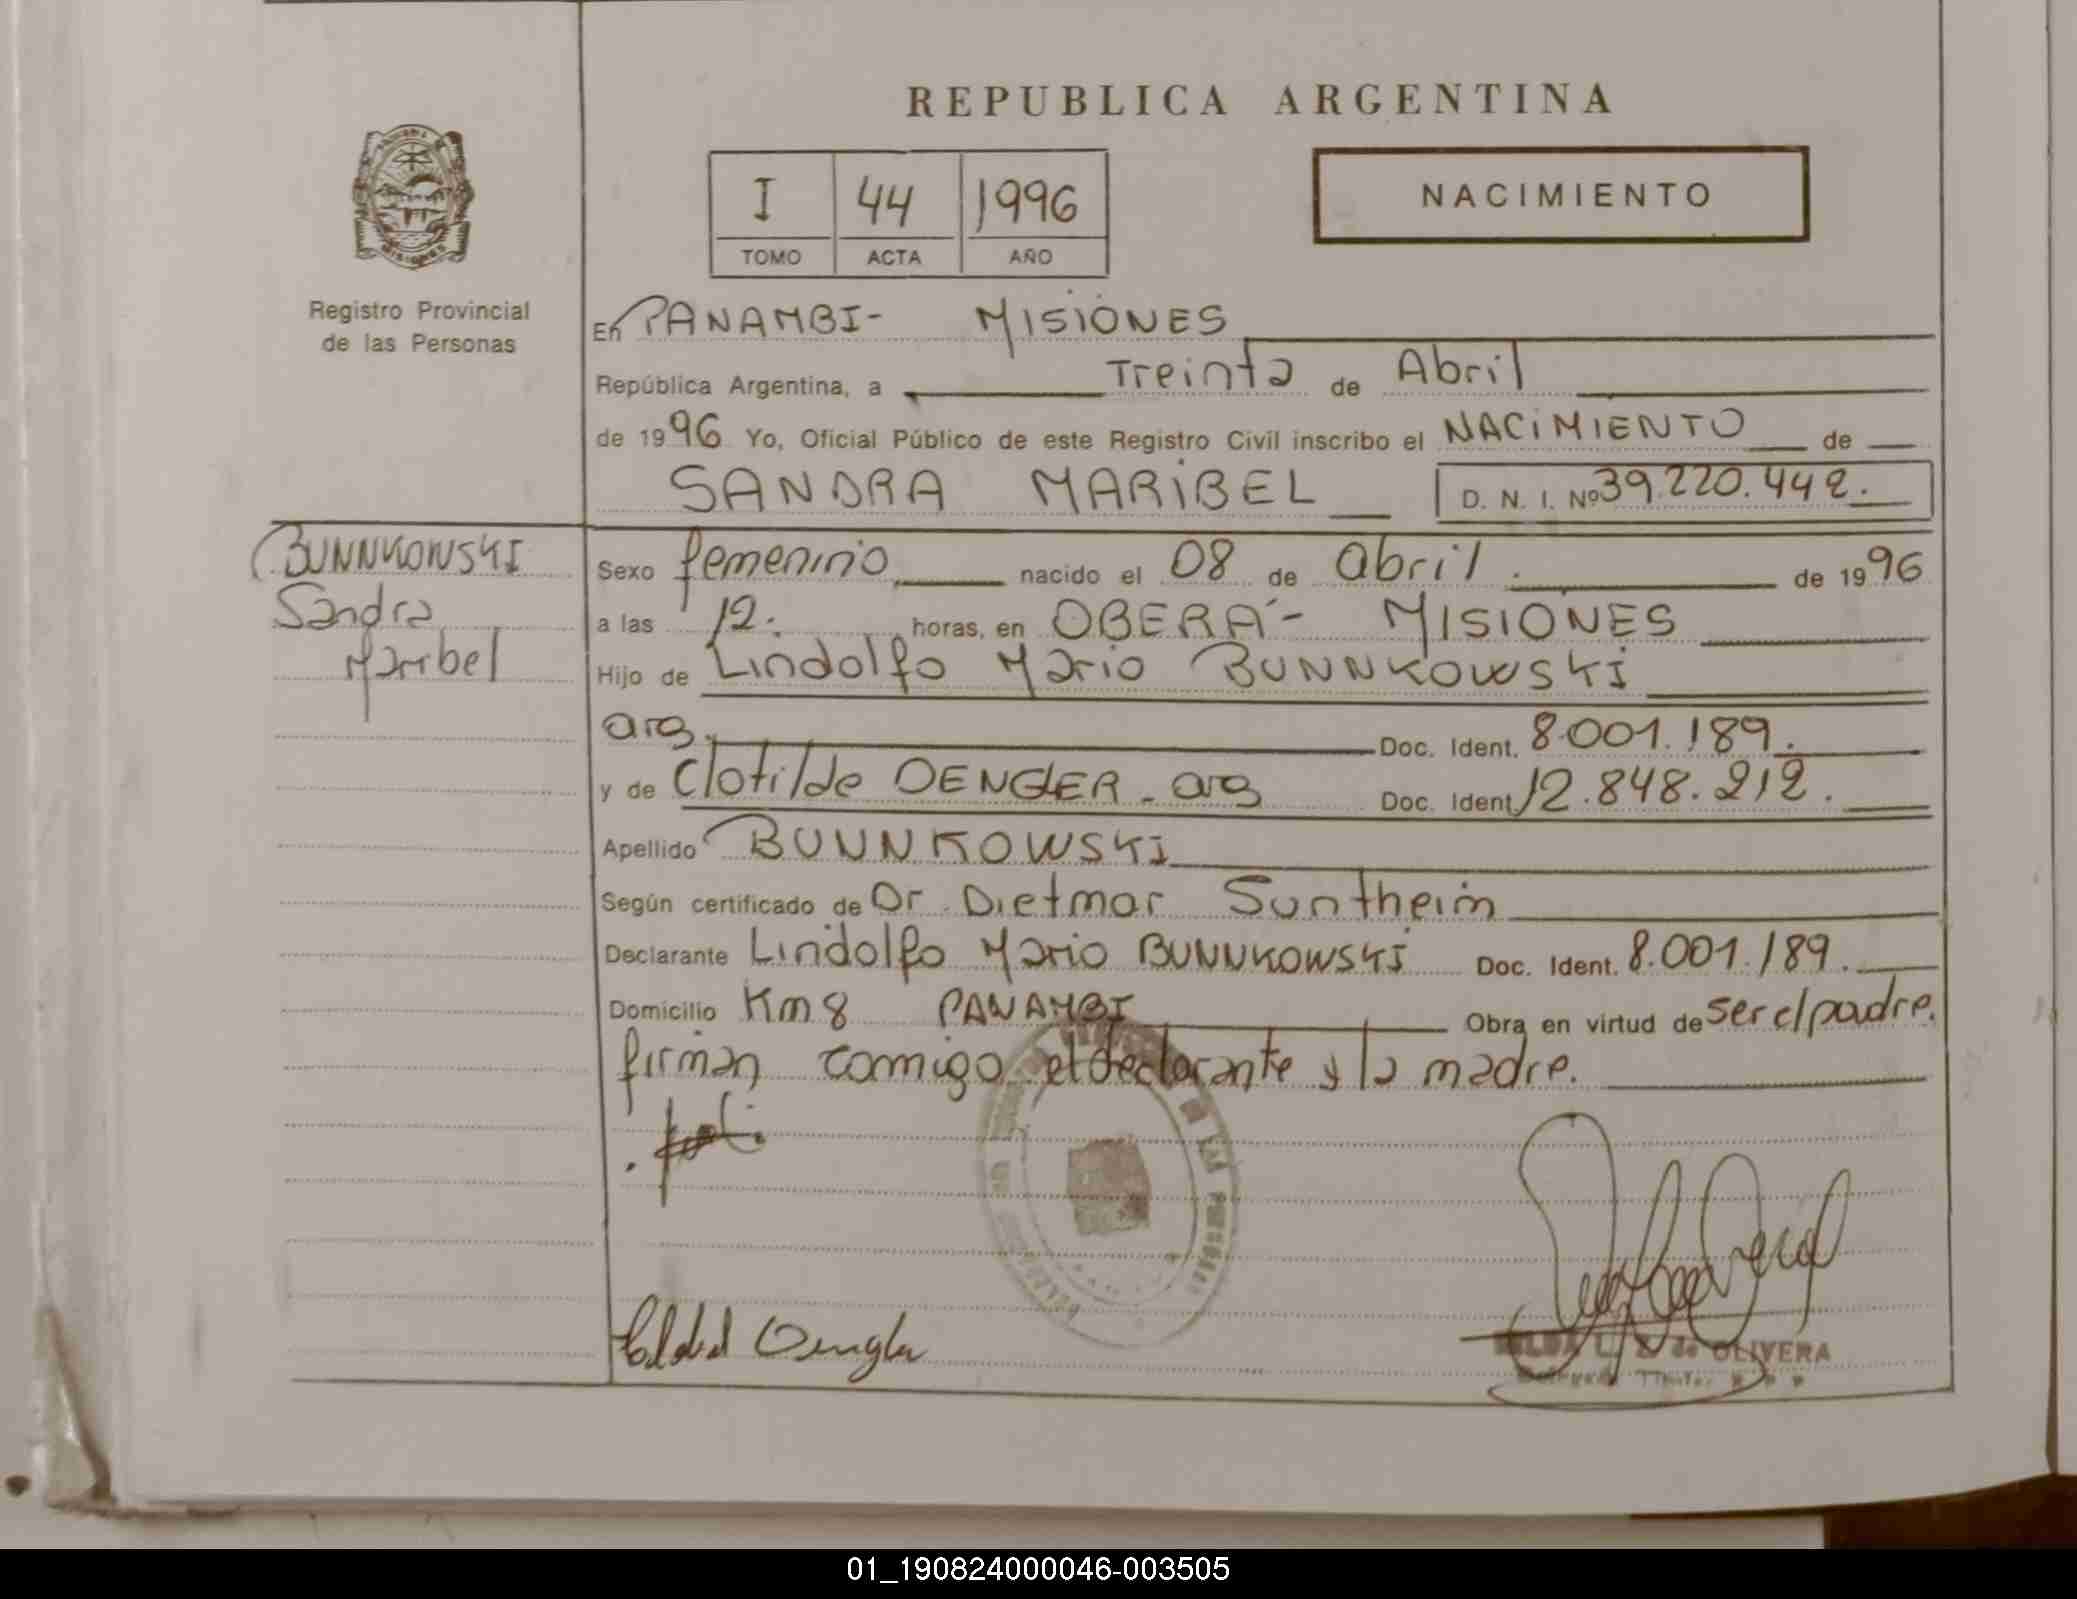 REPUBLICA ARGENTINA
I 44 1996
TOMO ACTA AÑO
NACIMIENTO
Registro Provincial
de las Personas
En PANAMBI- MISIONES
República Argentina, a Treinta de Abril
de 1996 Yo, Oficial Público de este Registro Civil inscribo el NACIMIENTO de
SANDRA MARIBEL D. N. I. Nº 39.220.442.
BUNNKOWSKI
Sandra
Maribel
Sexo femenino nacido el 08 de abril. de 1996
a las 12. horas, en OBERÁ - MISIONES
Hijo de Lindolfo Mario BUNNKOWSKI
arg. Doc. Ident. 8.001.189.
y de Clotilde DENGLER - arg Doc. Ident 12.848.212.
Apellido BUNNKOWSKI
Según certificado de Dr. Dietmar Suntheim
Declarante Lindolfo Mario BUNNKOWSKI Doc. Ident. 8.001.189.
Domicilio Km 8 PANAMBI Obra en virtud de ser el padre.
firman conmigo el declarante y la madre.
DE LAS PERSONAS
Dengler
de OLIVERA
01_190824000046-003505